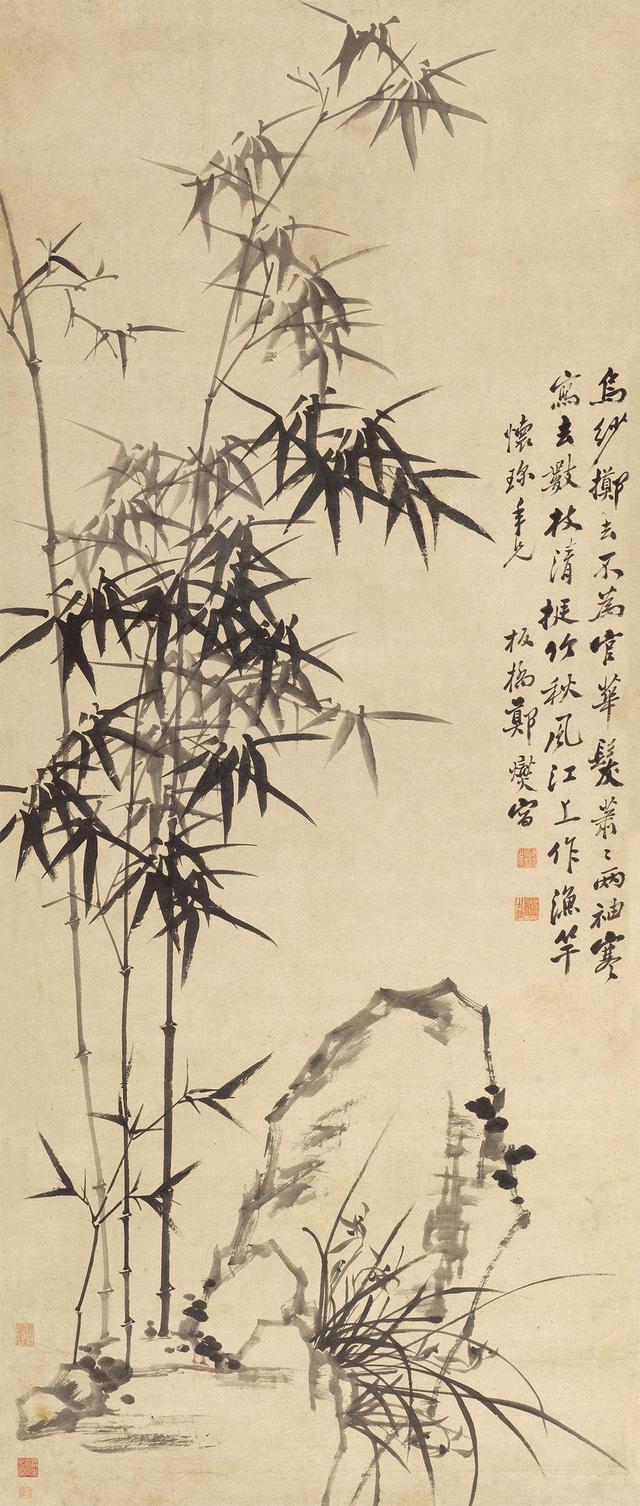 烏紗擲去不為官華髮蕭〻兩袖寒
寫去數枝清挺竹秋風江上作漁竿
懷珎年兄
板橋鄭燮寫